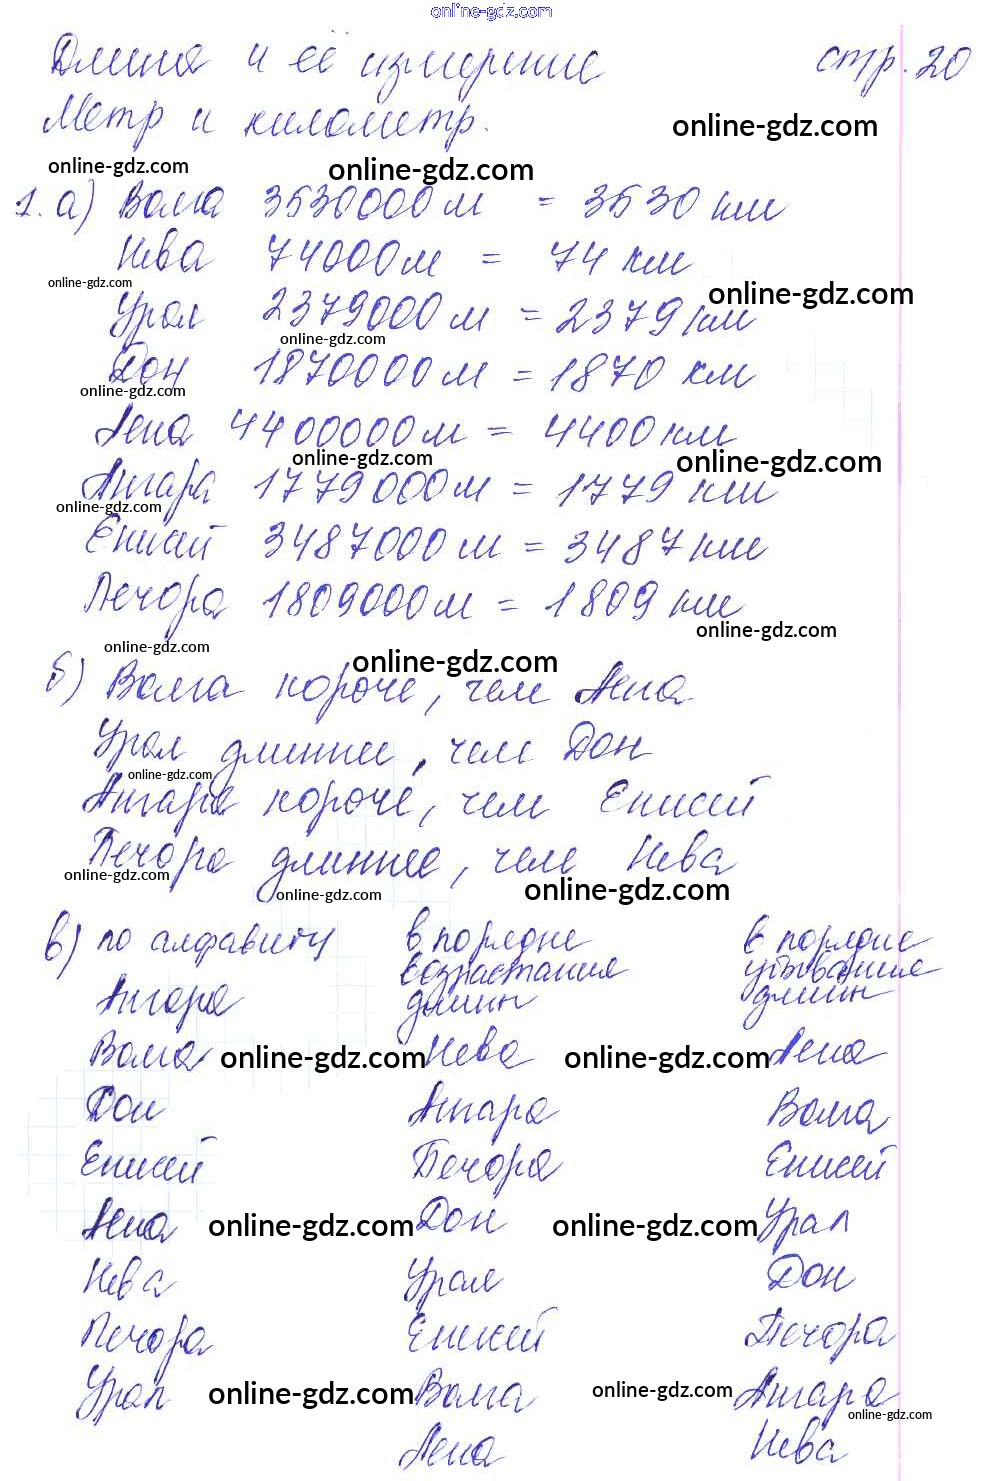 online-gdz.com
Длина и её измерение стр. 20
Метр и километр.
online-gdz.com
online-gdz.com online-gdz.com
1. а) Волга 3530000 м = 3530 км
Нева 74000 м = 74 км
online-gdz.com online-gdz.com
Урал 2379000 м = 2379 км
online-gdz.com
Дон 1870000 м = 1870 км
online-gdz.com
Лена 4400000 м = 4400 км
online-gdz.com online-gdz.com
Ангара 1779000 м = 1779 км
online-gdz.com
Енисей 3487000 м = 3487 км
Печора 1809000 м = 1809 км
online-gdz.com
online-gdz.com online-gdz.com
б) Волга короче, чем Лена
Урал длиннее, чем Дон
online-gdz.com
Ангара короче, чем Енисей
Печора длиннее, чем Нева
online-gdz.com online-gdz.com online-gdz.com
в) по алфавиту в порядке возрастания длин в порядке убывания длин
Ангара
Волга online-gdz.com Нева online-gdz.com Лена
Дон Ангара Волга
Енисей Печора Енисей
Лена online-gdz.com Дон online-gdz.com Урал
Нева Урал Дон
Печора Енисей Печора
Урал online-gdz.com Волга online-gdz.com Ангара
online-gdz.com
Лена Нева